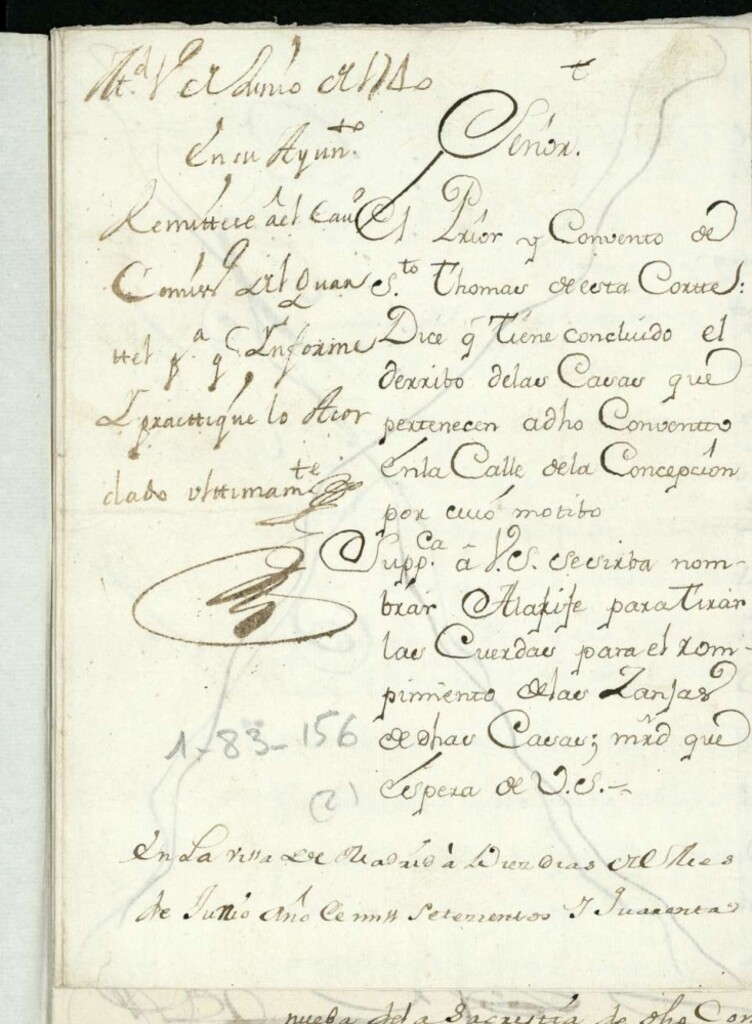 M.d V de Junio de 1740
En su Ayun.to
Remittese al Cavº
Comiss.º del Quar
ttel p.a q Informe
y practtique lo Acor
dado ulttimam.te
t
Señor.
El Prior y Convento de
S.to Thomas de esta Cortte:
Dice q Tiene concluido el
derribo delas Casas que
pertenecen adho Conventto
enla Calle dela Concepción
por cuió motibo
Supp.ca â V.S. se sirba nom-
brár Alarife para Tirár
las Cuerdas para el rom-
pimiento delas Zanjas
de dhas Casas; mrd que
espera de V.S.
1-83-156
(2)
En La villa de Madrid à Diez dias del Mes
de Junio Año de mill Setezientos y Quarenta
nueba de la Sacristia de dho Con